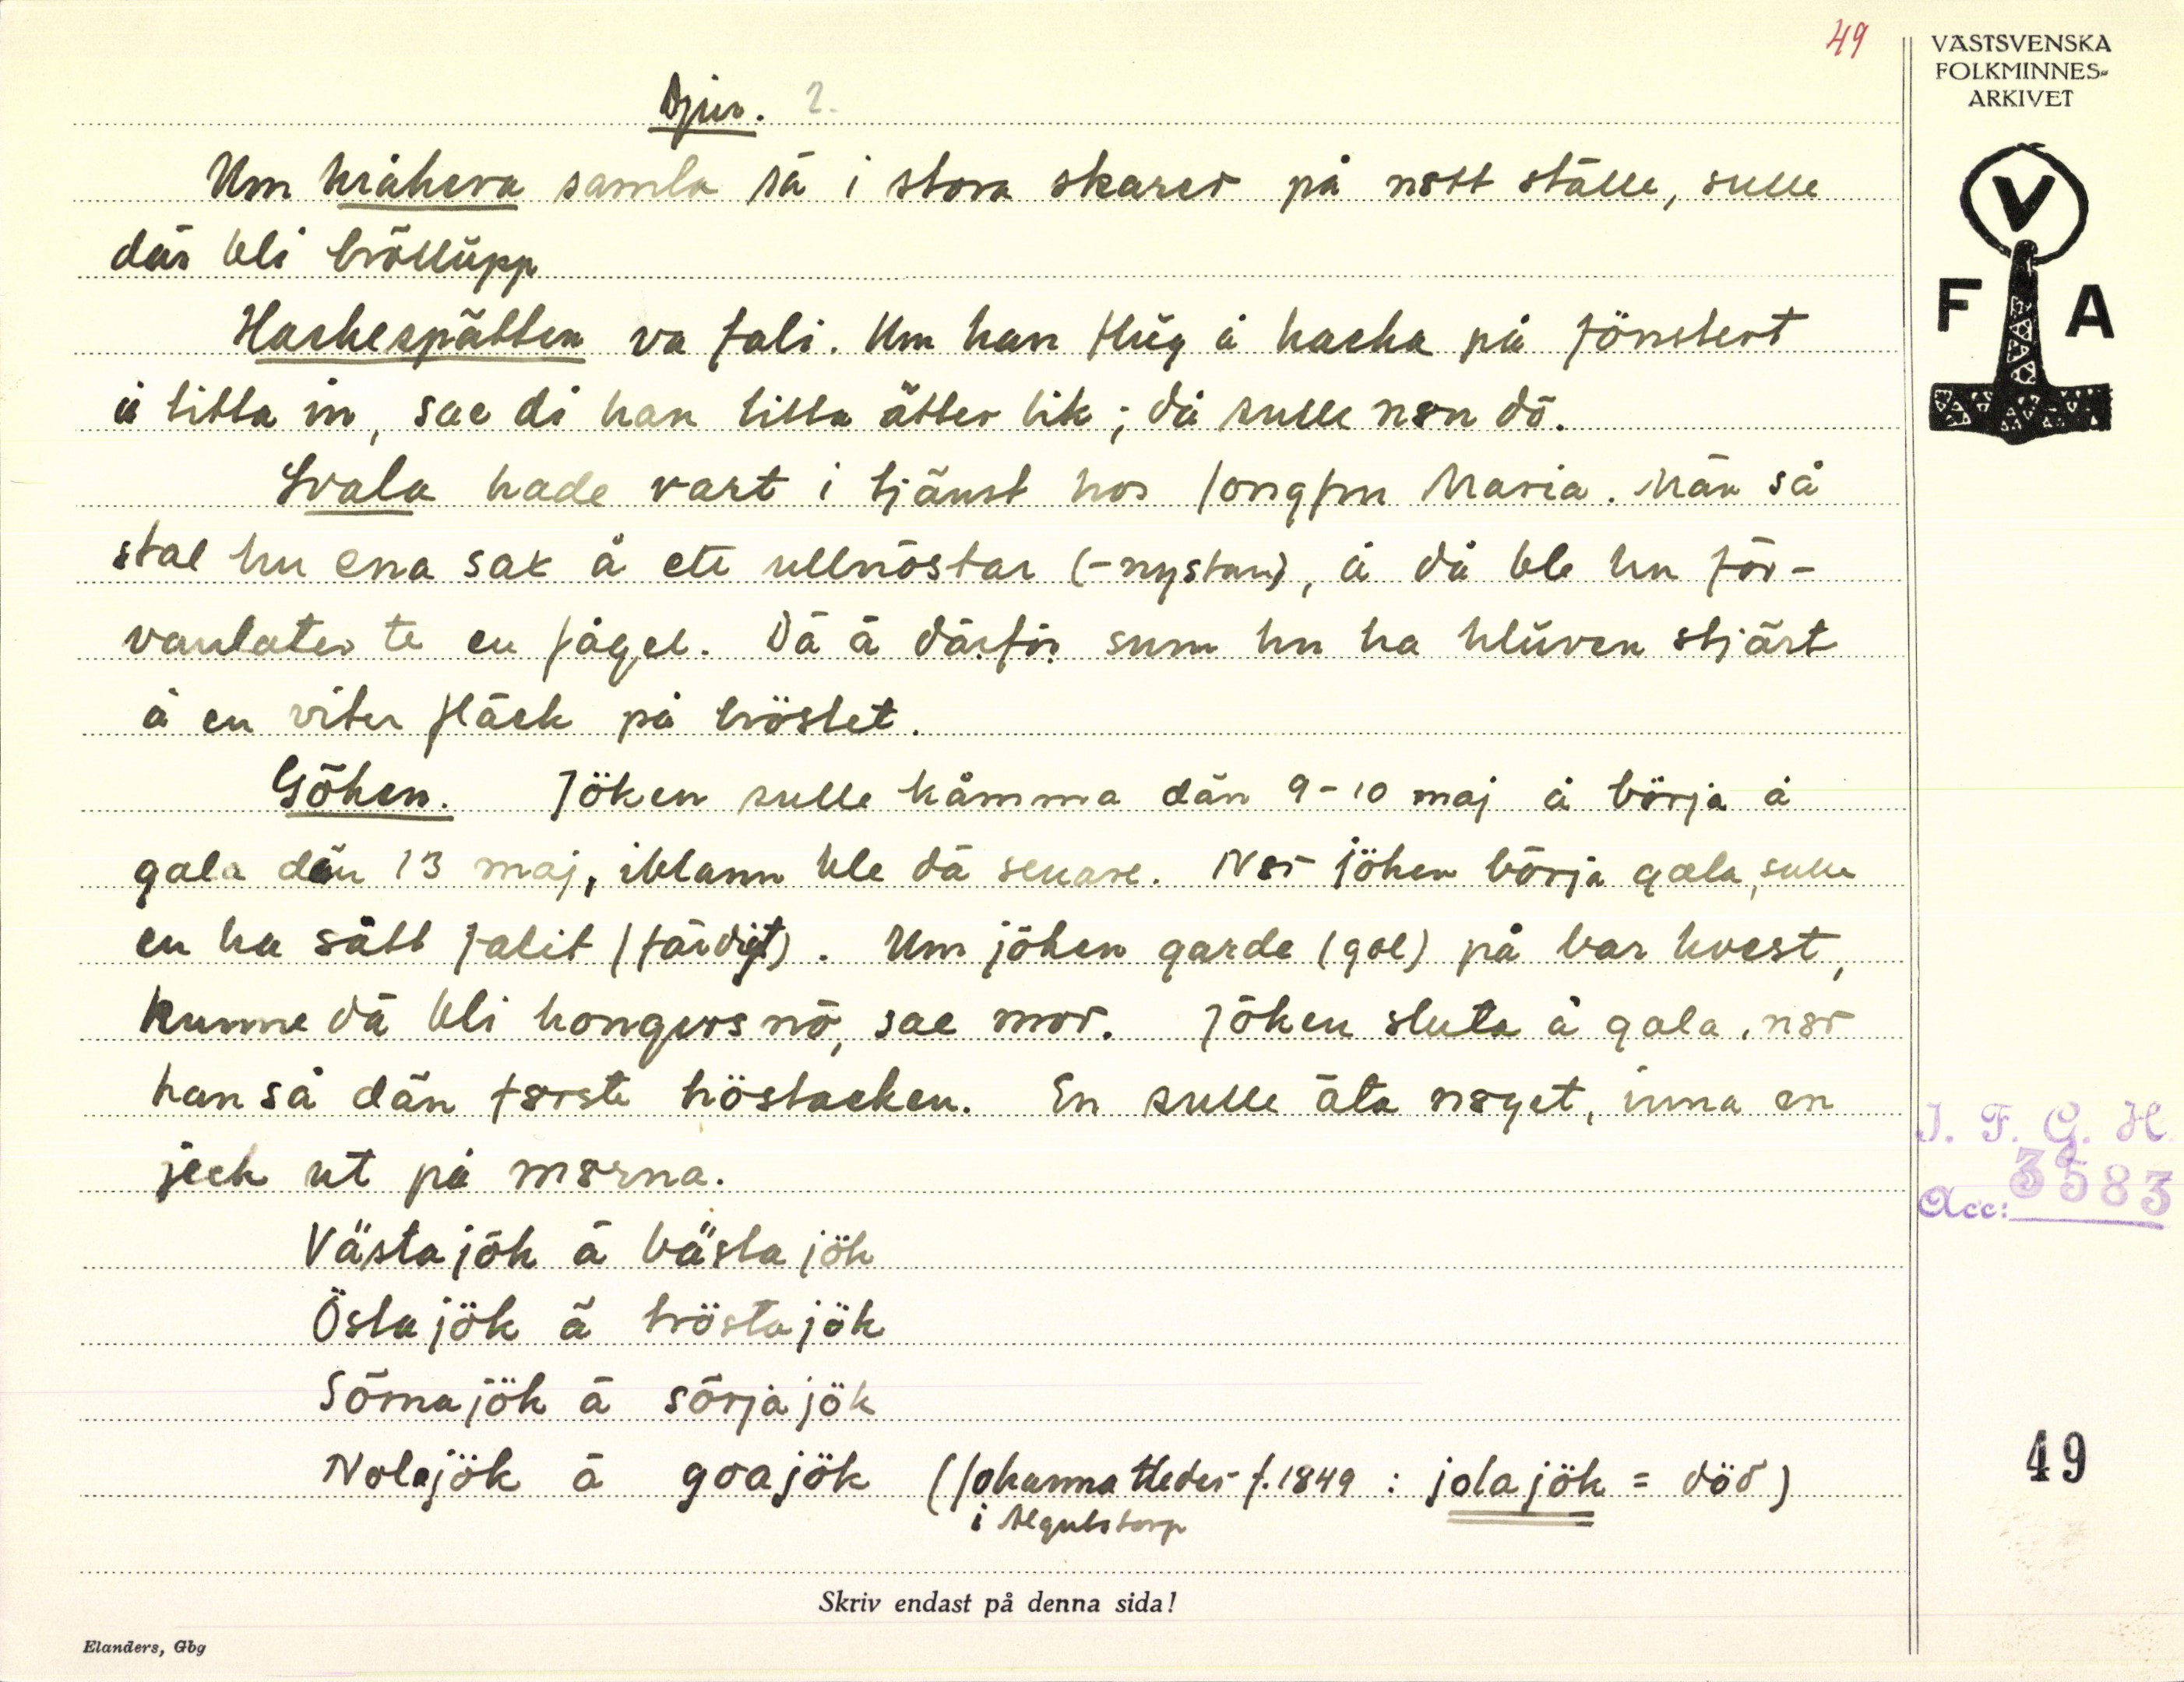 49
VÄSTSVENSKA
FOLKMINNES-
ARKIVET
V
F A
Djur. 2.
Um kråkera samla sä i stora skarer på nått ställe, sulle
där bli bröllüpp
Hackespätten va fali. Um han flüg å hacka på fönstert
å titta in, sae di han titta ätter lik; då sulle nån dö.
Svala hade vart i tjänst hos Jongfru Maria. Män så
stal hu ena sax å ett ullnöstan (-nystan), å då ble hu för-
vanlater te en fågel. Dä ä därför sum hu ha klüven stjärt
å en viter fläck på bröstet.
Göken. Jöken sulle kåmma dän 9-10 maj å börja å
gala dän 13 maj, iblann ble dä senare. Når jöken börja gala, sulle
en ha sått falit (färdigt). Um jöken garde (gol) på bar kvest,
kunne dä bli hongersnö, sae mor. Jöken sluta å gala, når
han så dän første höstacken. En sulle äta nøget, inna en
jeck ut på mørna.
Västajök ä bästajök
Östajök ä tröstajök
Sörnajök ä sörjajök
Nolajök ä goajök (Johanna Heder f. 1849 : jolajök = död)
i Algutstorp
I. F. G. H.
Acc: 3583
49
Skriv endast på denna sida!
Elanders, Gbg